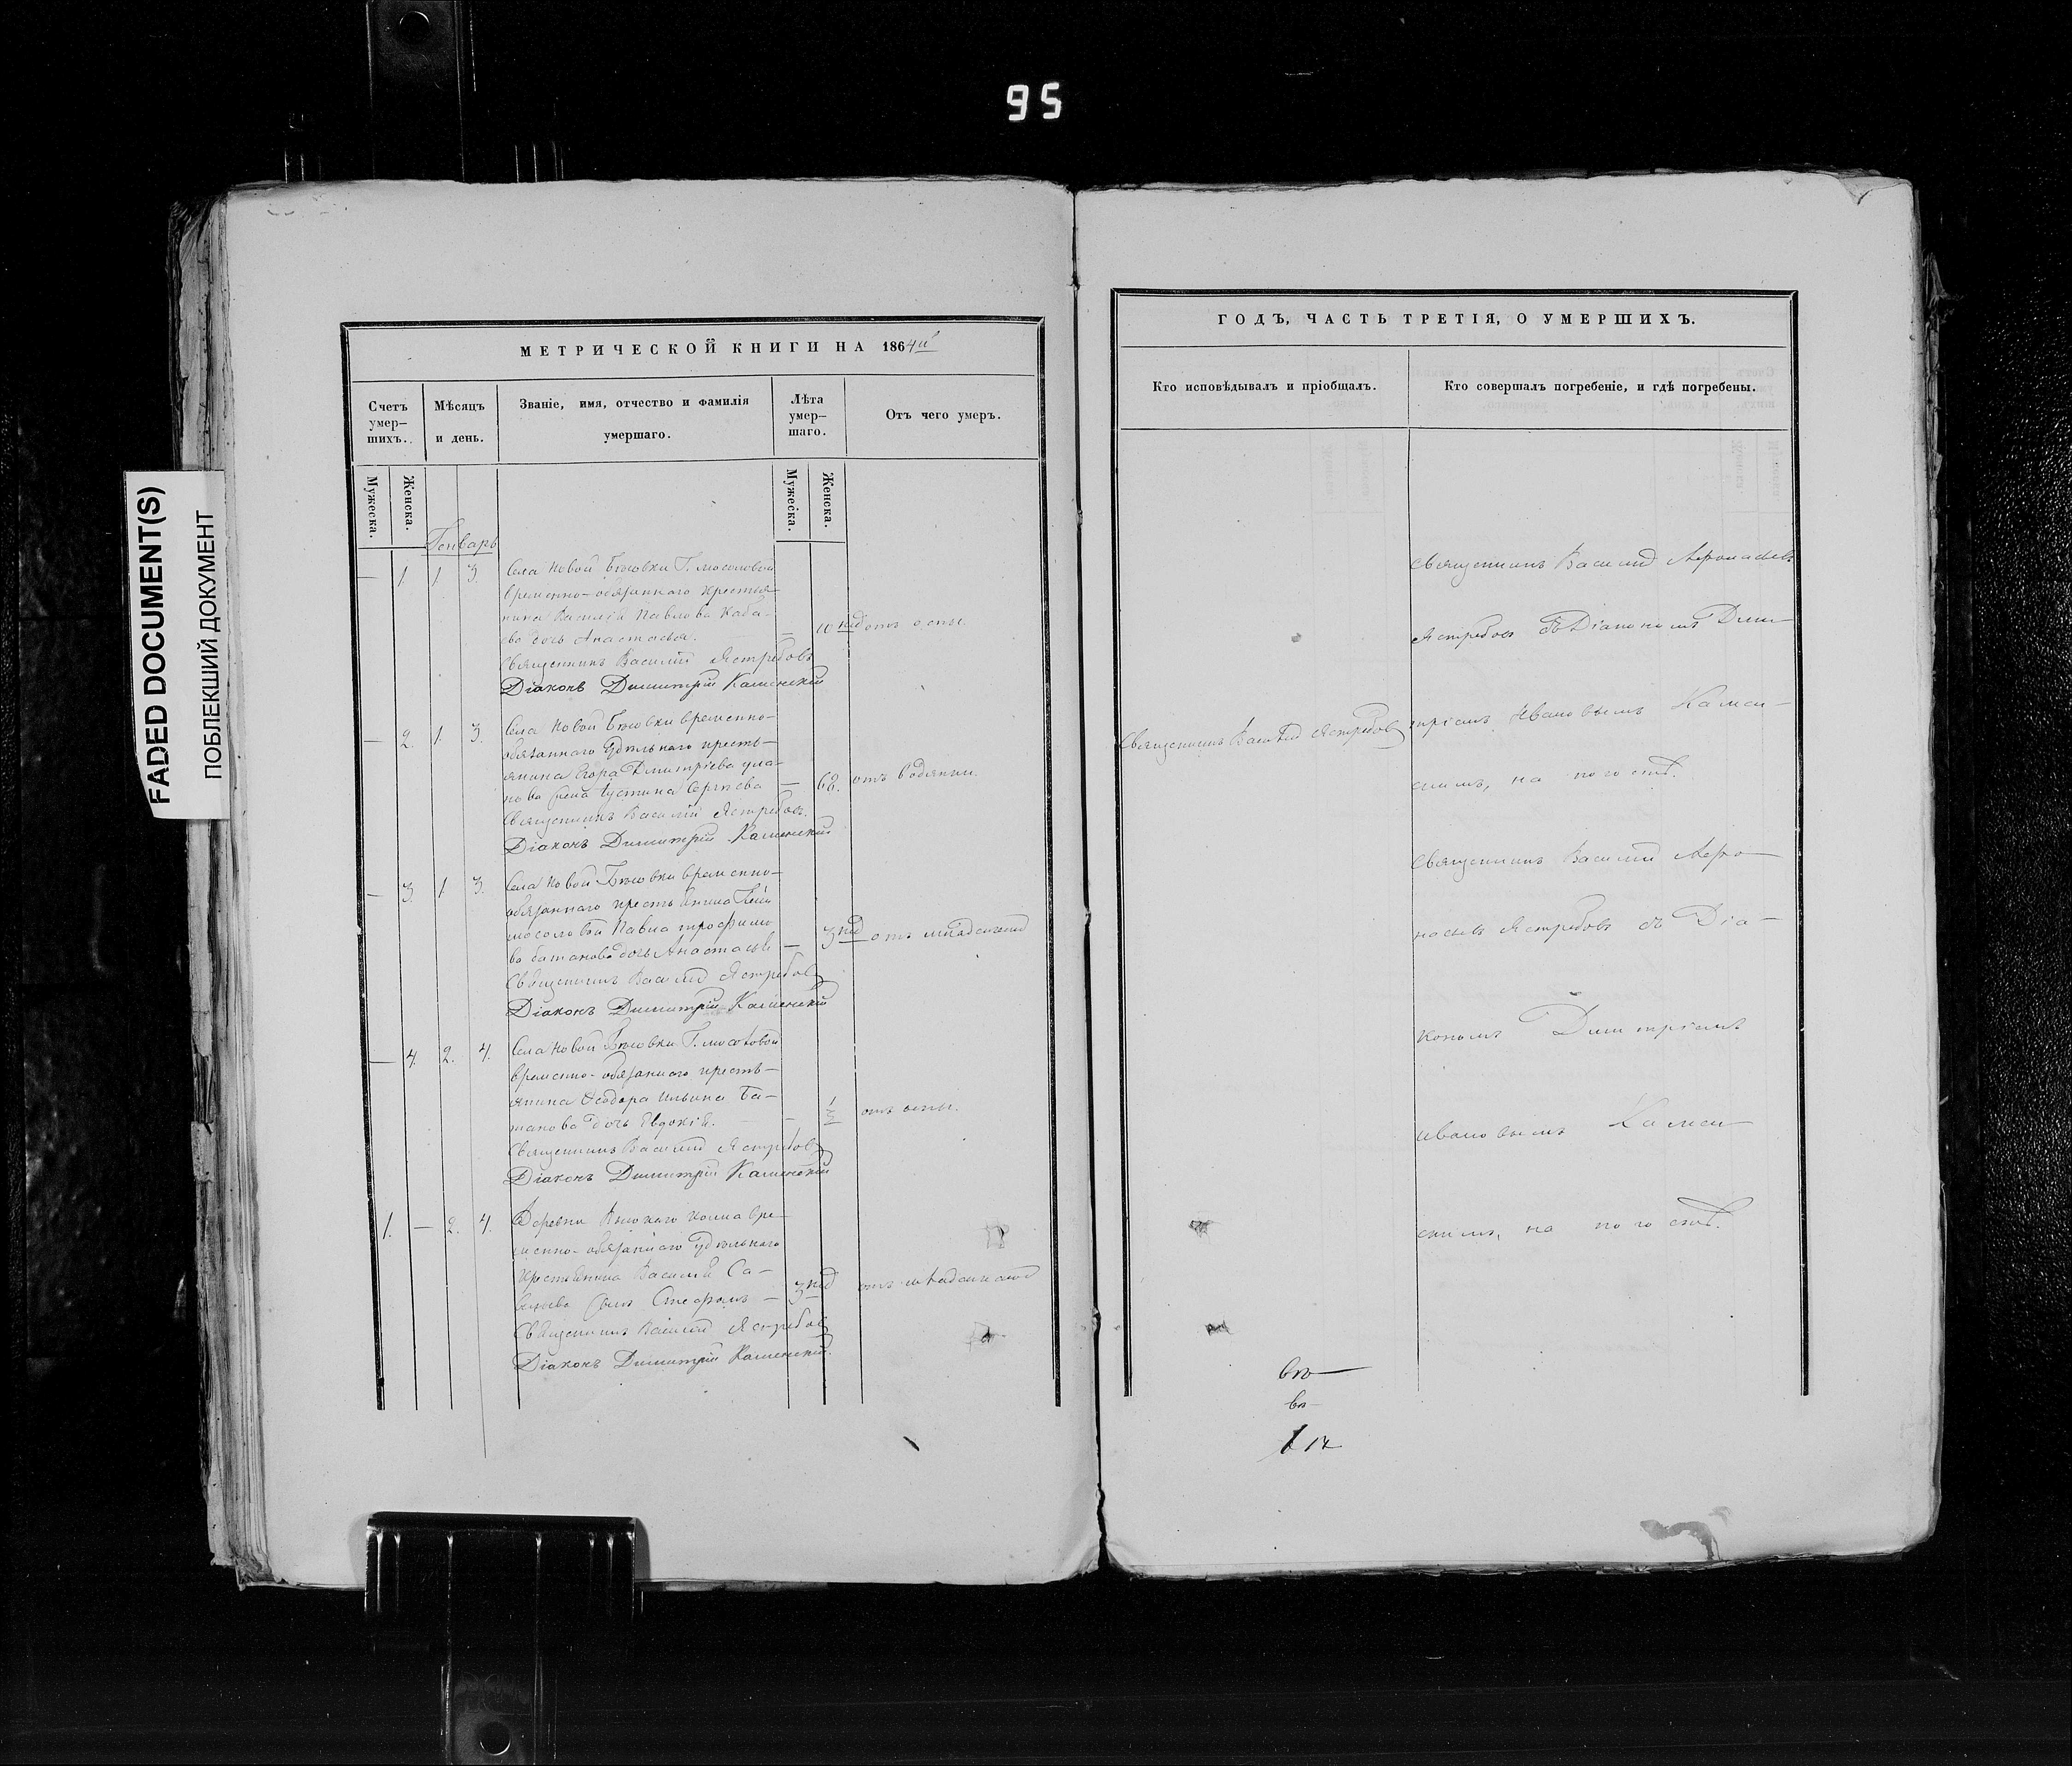 95
FADED DOCUMENT(S)
ПОБЛЕКШИЙ ДОКУМЕНТ
МЕТРИЧЕСКОЙ КНИГИ НА 1864й
Счетъ умер-шихъ.
Мѣсяцъ и день.
Званіе, имя, отчество и фамилія умершаго.
Лѣта умер-шаго.
Отъ чего умеръ.
Мужеска.
Женска.
Мужеска.
Женска.
Генварь
— 1. 1. 3. Села Новой Г.
временно-обязаннаго крестья-
нина Василія Павлова
дочь Анастасья. — 10 нед отъ оспы.
Священникъ Василій Ястребовъ
Діаконъ Димитрій Каменскій
— 2. 1. 3. Села Новой временно-
обязаннаго Удѣльнаго кресть-
янина Егора Дмитріева
жена Устина Сергѣева — 62. отъ водянки.
Священникъ Василій Ястребовъ.
Діаконъ Димитрій Каменскій
— 3. 1. 3. Села Новой временно-
обязаннаго крестьянина
Павла Трофимо-
ва Батанова дочь Анастасья — 3 нед отъ
Священникъ Василій Ястребовъ
Діаконъ Димитрій Каменскій
— 4. 2. 4. Села Новой Г.
временно-обязаннаго кресть-
янина Ѳеодора Ильина Ба-
танова дочь Евдокія. — отъ оспы.
Священникъ Василій Ястребовъ
Діаконъ Димитрій Каменскій
1. — 2. 4. Деревни вре-
менно-обязаннаго Удѣльнаго
крестьянина Василія Са-
сынъ Стефанъ — 3 нед отъ
Священникъ Василій Ястребовъ
Діаконъ Димитрій Каменскій.
ГОДЪ, ЧАСТЬ ТРЕТІЯ, О УМЕРШИХЪ.
Кто исповѣдывалъ и пріобщалъ.
Кто совершалъ погребеніе, и гдѣ погребены.
Священникъ Василій Ястребовъ
Священникъ Василій Аѳонасьевъ
Ястребовъ съ Діакономъ Дими-
тріемъ Ивановымъ Камен-
скимъ, на погостѣ.
Священникъ Василій Аѳо-
насьевъ Ястребовъ съ Діа-
кономъ Димитріемъ
Ивановымъ Камен-
скимъ, на погостѣ.